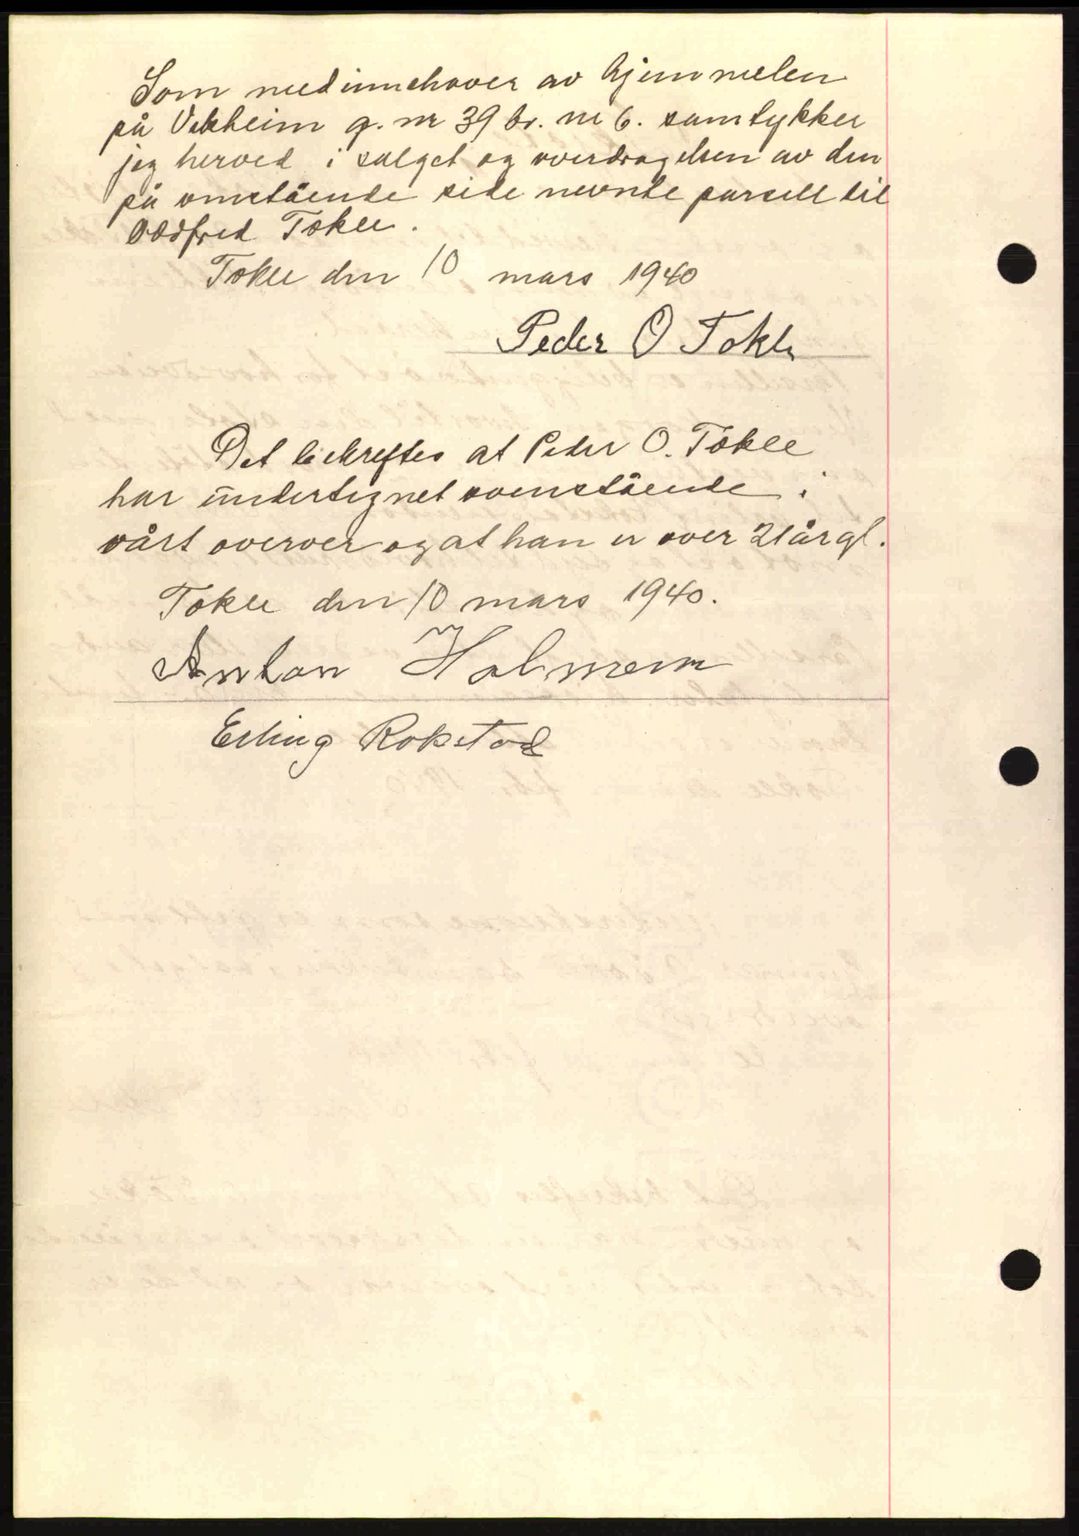 Som medinnehaver av hjemmelen
på Vekheim g. nr 39 br. nr 6. samtykker
jeg herved i salget og overdragelsen av den
på omstående side nevnte parsell til
Oddfred Tokle.
Tokle den 10 mars 1940
Peder O Tokle
Det bekreftes at Peder O. Tokle
har undertegnet ovenstående i
vårt overver og at han er over 21 år gl.
Tokle den 10 mars 1940.
Anton Holmem
Erling Rokstad